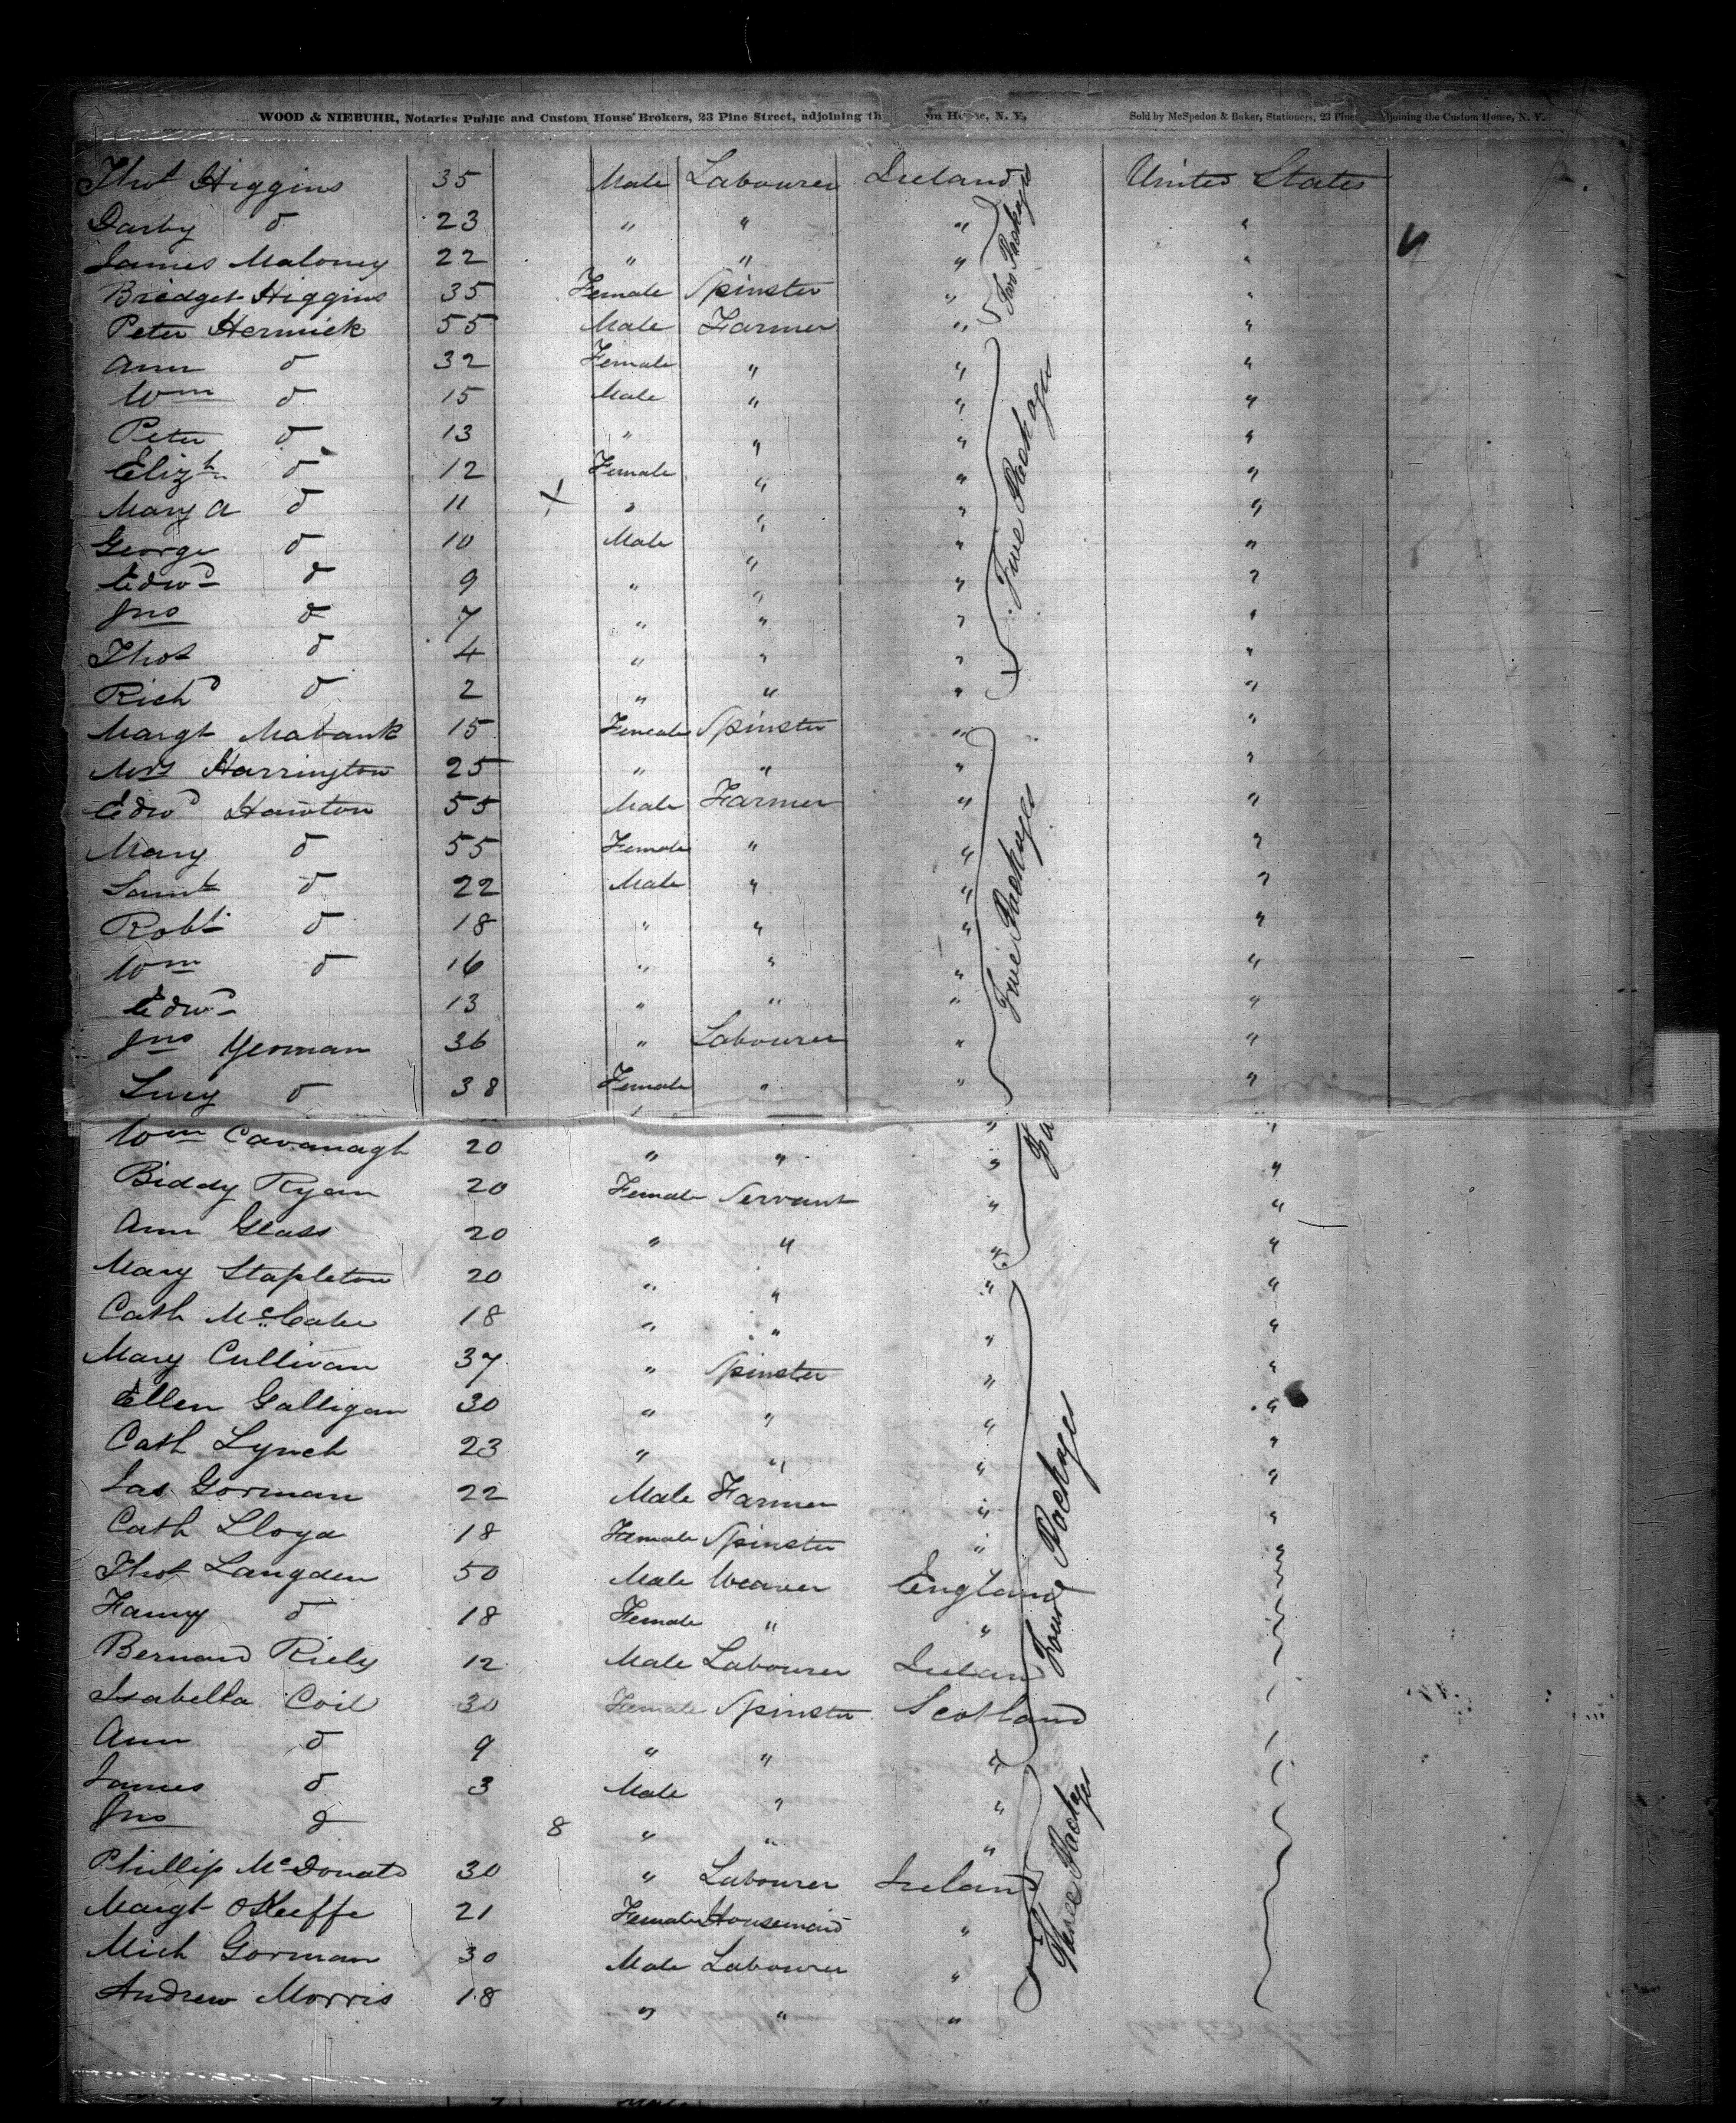 WOOD & NIEBUHR, Notaries Public and Custom House Brokers, 23 Pine Street, adjoining th m House, N. Y. Sold by McSpedon & Baker, Stationers, 23 Pine djoining the Custom House, N. Y.
Thos Higgins 35 Male Labourer Ireland United States
Darby do 23 " " " "
James Maloney 22 " " " "
Bridget Higgins 35 Female Spinster " "
Two Packages
Peter Hernick 55 Male Farmer " "
Ann do 32 Female " " "
Wm do 15 Male " " "
Peter do 13 " " " "
Elizth do 12 Female " " "
Mary A do 11 " " " "
George do 10 Male " " "
Edwd do 9 " " " "
Jno do 7 " " " "
Thos do 4 " " " "
Richd do 2 " " " "
Five Packages
Margt Mabank 15 Female Spinster " "
Mrs Harrington 25 " " " "
Edwd Hawton 55 Male Farmer " "
Mary do 55 Female " " "
Saml do 22 Male " " "
Robt do 18 " " " "
Wm do 16 " " " "
Edwd 13 " " " "
Jno Yeoman 36 " Labourer " "
Lucy do 38 Female " " "
Five Packages
Wm Cavanagh 20 " " " "
Biddy Ryan 20 Female Servant " "
Ann Glass 20 " " " "
Mary Stapleton 20 " " " "
Cath McCabe 18 " " " "
Mary Cullivan 37 " Spinster " "
Ellen Galligan 30 " " " "
Cath Lynch 23 " " " "
Jas Gorman 22 Male Farmer " "
Cath Lloyd 18 Female Spinster " "
Thos Langden 50 Male Weaver England
Fanny do 18 Female " "
Bernard Riely 12 Male Labourer Ireland
Isabella Coil 30 Female Spinster Scotland
Four Packages
Ann do 9 " " "
James do 3 Male " "
Jno do 8 " " "
Phillip McDonald 30 " Labourer Ireland
Margt OKeeffe 21 Female Housemaid "
Mich Gorman 30 Male Labourer "
Andrew Morris 18 " " "
Three Packages